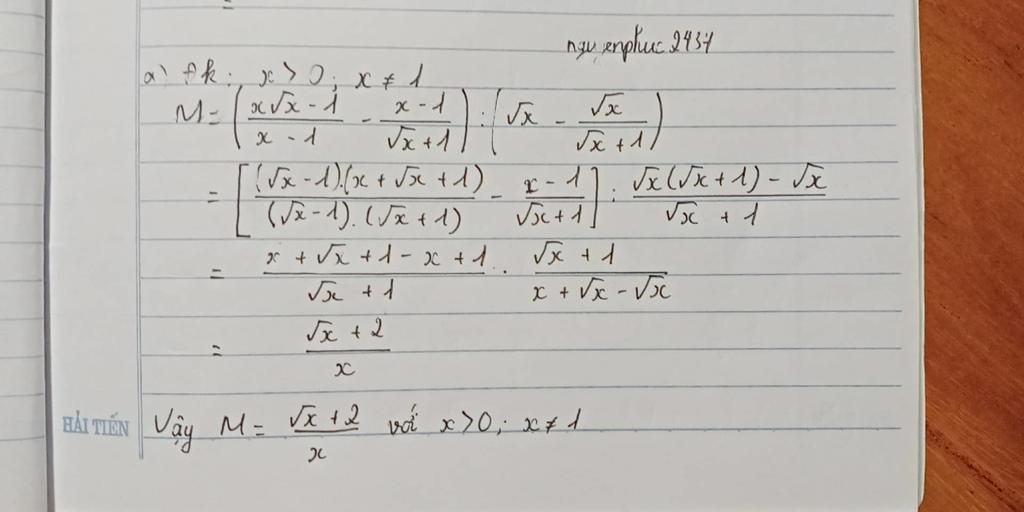 nguyenphuc2437
a) Đk: x > 0; x ≠ 1
M = ((x√x - 1)/(x - 1) - (x - 1)/(√x + 1)) : (√x - √x/(√x + 1))
= [((√x - 1).(x + √x + 1))/((√x - 1).(√x + 1)) - (x - 1)/(√x + 1)] : (√x(√x + 1) - √x)/(√x + 1)
= (x + √x + 1 - x + 1)/(√x + 1) . (√x + 1)/(x + √x - √x)
= (√x + 2)/x
HẢI TIẾN
Vậy M = (√x + 2)/x với x > 0; x ≠ 1